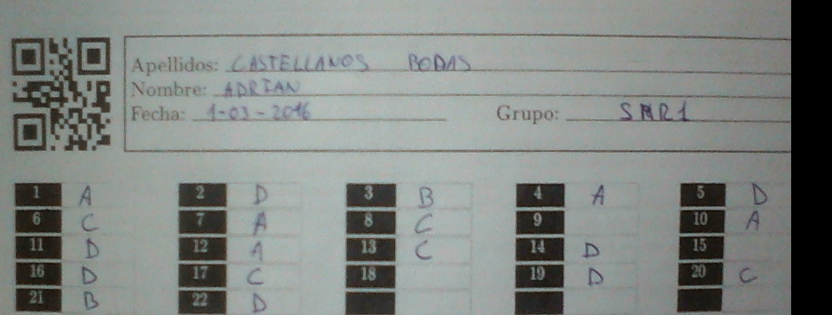 Apellidos: CASTELLANOS BODAS
Nombre: ADRIAN
Fecha: 1-03-2016 Grupo: SMR1
1 A 2 D 3 B 4 A 5 D
6 C 7 A 8 C 9 10 A
11 D 12 A 13 C 14 D 15
16 D 17 C 18 19 D 20 C
21 B 22 D